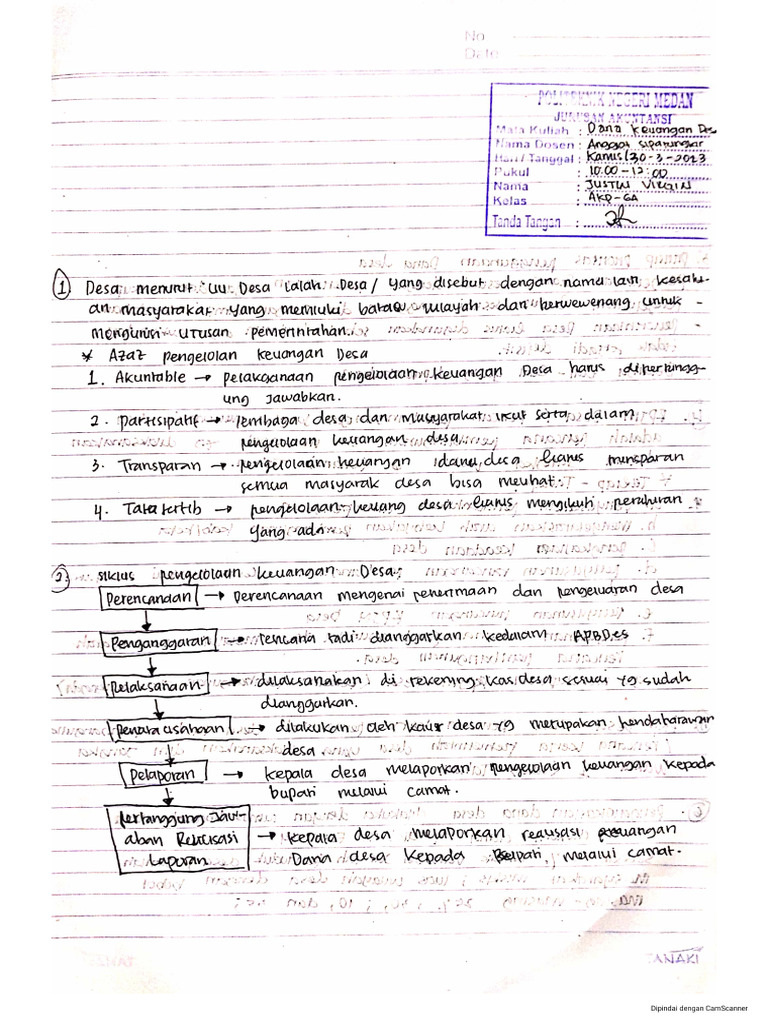 No
Date
POLITEKNIK NEGERI MEDAN
JURUSAN AKUNTANSI
Mata Kuliah : Dana Keuangan Des
Nama Dosen : Anggiat Situngkir
Hari / Tanggal : Kamis/30-3-2023
Pukul : 10.00-12:00
Nama : JUSTIN VIRGIN
Kelas : AKP-6A
Tanda Tangan :
1 Desa menurut UU Desa ialah Desa/ yang disebut dengan nama lain kesatu
an masyarakat yang memiliki batas wilayah dan berwewenang untuk
mengurusi urusan pemerintahan.
* Azaz pengelolan keuangan Desa
1. Akuntable → pelaksanaan pengelolaan keuangan Desa harus dipertangg-
ung jawabkan.
2. Partisipatif → lembaga desa dan masyarakat ikut serta dalam
pengelolaan keuangan desa
3. Transparan → pengelolaan keuangan desa harus transparan
semua masyarak desa bisa melihat.
4. Tata tertib → pengelolaan keuang desa harus mengikuti peraturan
yang ada
2. siklus pengelolaan keuangan Desa
Perencanaan → perencanaan mengenai penerimaan dan pengeluaran desa
Penganggaran → rencana tadi dianggarkan kedalam APBDes
Pelaksanaan → dilaksanakan di rekening kas desa sesuai yg sudah
dianggarkan.
Penatausahaan → dilakukan oleh kaur desa yg merupakan bendaharawan
desa
Pelaporan → kepala desa melaporkan pengelolaan keuangan kepada
bupati melalui camat.
Pertanggung Jaw-
aban Realisasi
Laporan → kepala desa melaporkan realisasi
Dana desa kepada Bupati melalui camat.
TANAKI
Dipindai dengan CamScanner